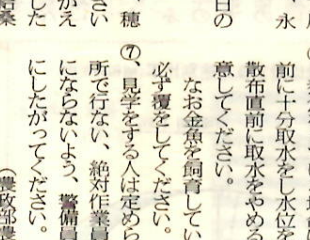 、永
前に十分取水をし水位を
日の
散布直前に取水をやめる
意してください。
なお金魚を飼育してい
必ず覆をしてください。
、穂
⑦、見学をする人は定めら
さい
所で行ない、絶対作業員
がえ
にならないよう、警備員
した
にしたがってください。
(農政部農